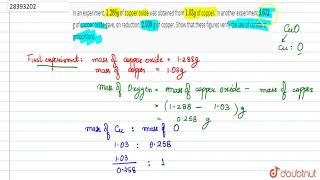 28393202
In an experiment, 1.288g of copper oxide was obtained from 1.03g of copper. In another experiment, 3.672
g of copper oxide gave, on reduction, 2.938 g of copper. Show that these figures verify the law of constant
proportions.
CuO
Cu : O
First experiment: mass of copper oxide = 1.288g
mass of copper = 1.03g
mass of Oxygen = mass of copper oxide - mass of copper
= (1.288 - 1.03) g
= 0.258 g
mass of Cu : mass of O
1.03 : 0.258
1.03
0.258 : 1
doubtnut